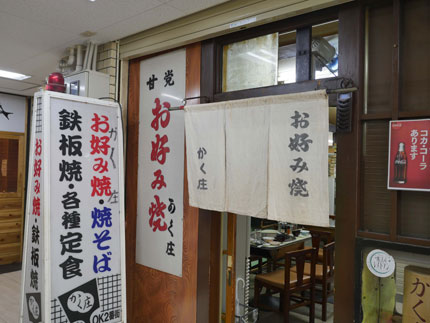 お好み焼・鉄板焼
がく庄
お好み焼・焼そば
鉄板焼・各種定食
がく庄
OK2番街
甘党
お好み焼
がく庄
お好み焼
かく庄
コカ・コーラ
あります
かく